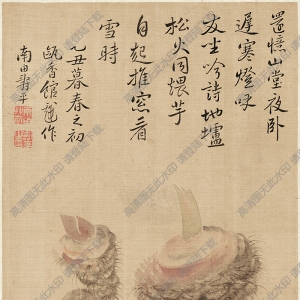 還憶山堂夜卧
遲寒燈呼
友坐吟詩地壚
松火同煨芋
自起推窓看
雪時
乙丑暮春之初
甌香館邊作
南田壽平